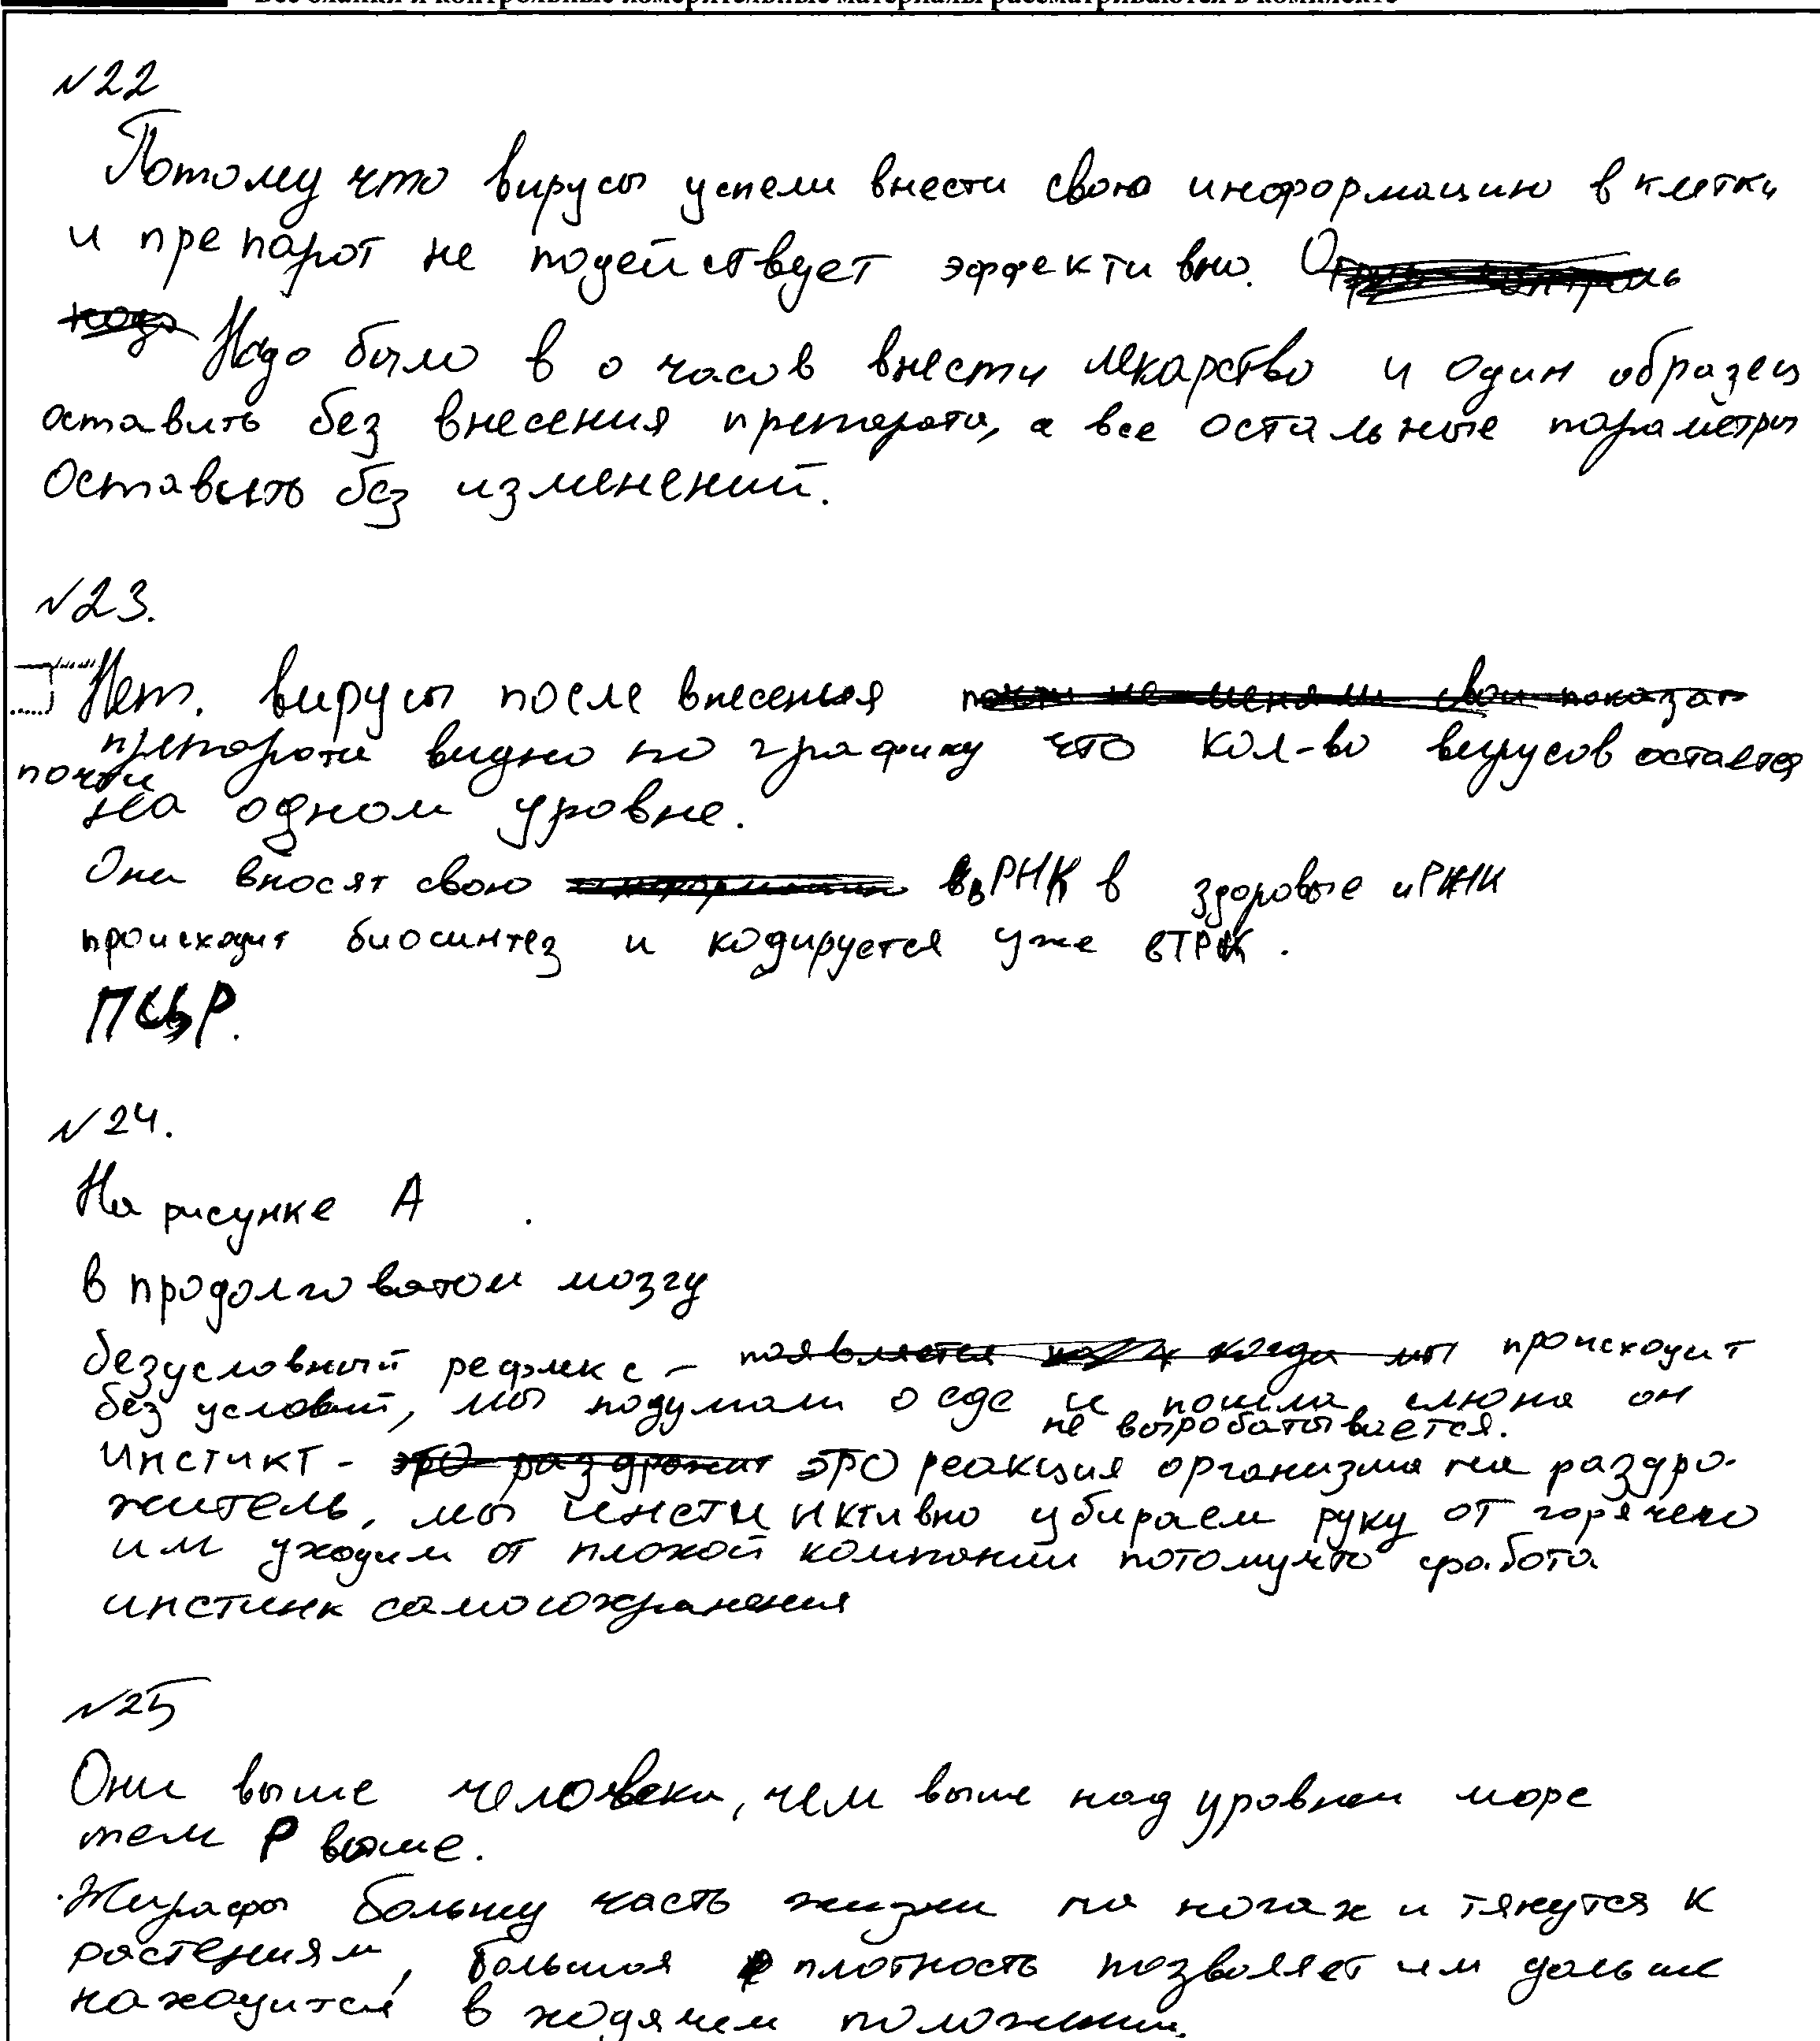 Все бланки и контрольные измерительные материалы рассматриваются в комплекте
№22
Потому что вирусы успели внести свою информацию в клетки
и препарот не подействует эффективно.
Надо было в 0 часов внести лекарство и один образец
оставить без внесения препарата, а все остальные параметры
Оставить без изменений.
№23.
Нет. вирусы после внесения
препарата видно по графику что кол-во вирусов остается
почти
на одном уровне.
Они вносят свою вРНК в здоровые иРНК
происходит биосинтез и кодируется уже
ПЦР.
№24.
На рисунке А .
в продолговатом мозгу
безусловный рефлекс - происходит
без условий, мы подумали о еде и пошла слюна он
не выробатывается.
Инстикт - это реакция организма на раздро-
житель, мы инстинктивно убираем руку от горячего
им уходим от плохой компании потомучто сработа
инстинк самосохранения
№25
Они выше человека, чем выше над уровнем море
тем Р выше.
Жирафы большу часть жизни на ногах и тянутся к
растениям, большая плотность позволяет им дольше
находится в ходячем положении.